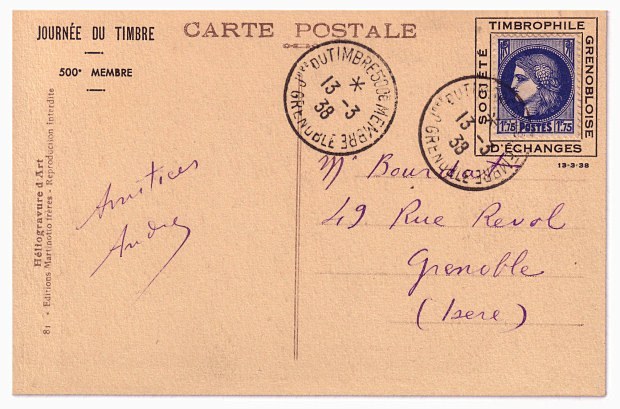 JOURNÉE DU TIMBRE
500e MEMBRE
CARTE POSTALE
SOCIÉTÉ
TIMBROPHILE
GRENOBLOISE
D'ÉCHANGES
1f75 POSTES 1f75
13-3-38
Jnée DU TIMBRE 500e MEMBRE
*
13-3
38
GRENOBLE
Jnée DU TIMBRE 500e MEMBRE
13-3
38
GRENOBLE
Amitiés
André
Mr
49 Rue Revol
Grenoble
(Isère)
Héliogravure d'Art
81 - Editions Martinotto frères - Reproduction interdite